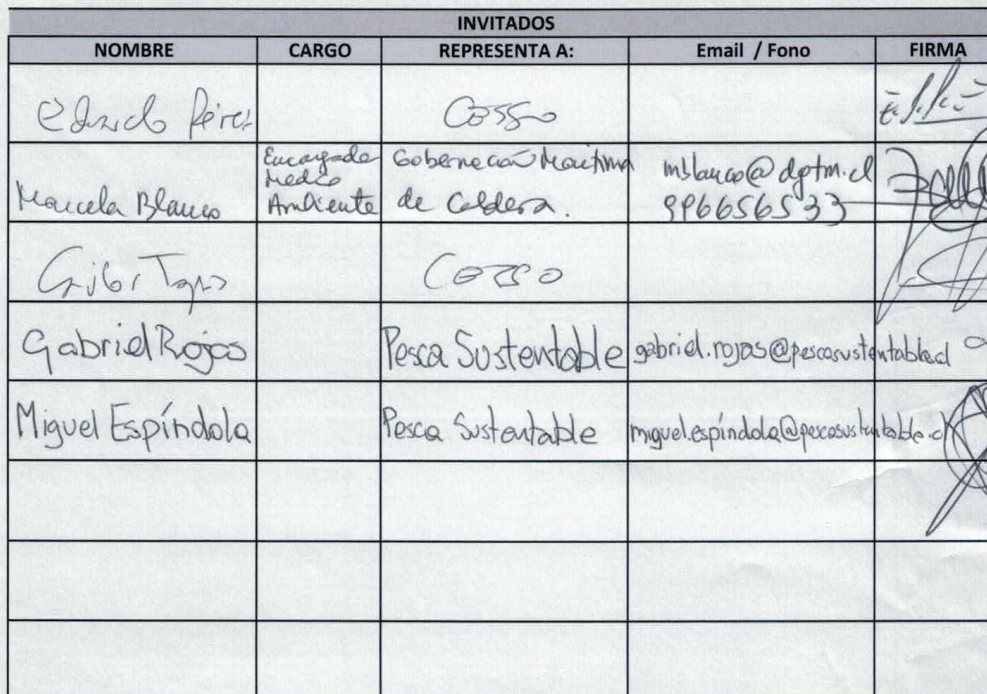 INVITADOS
NOMBRE CARGO REPRESENTA A: Email / Fono FIRMA
Eduardo Pérez
Marcela Blanco Encargada Medio Ambiente Gobernación Marítima de Caldera. mblanco@dgtm.cl 996656533
Gabriel Rojas Pesca Sustentable gabriel.rojas@pescasustentable.cl
Miguel Espíndola Pesca Sustentable miguel.espindola@pescasustentable.cl